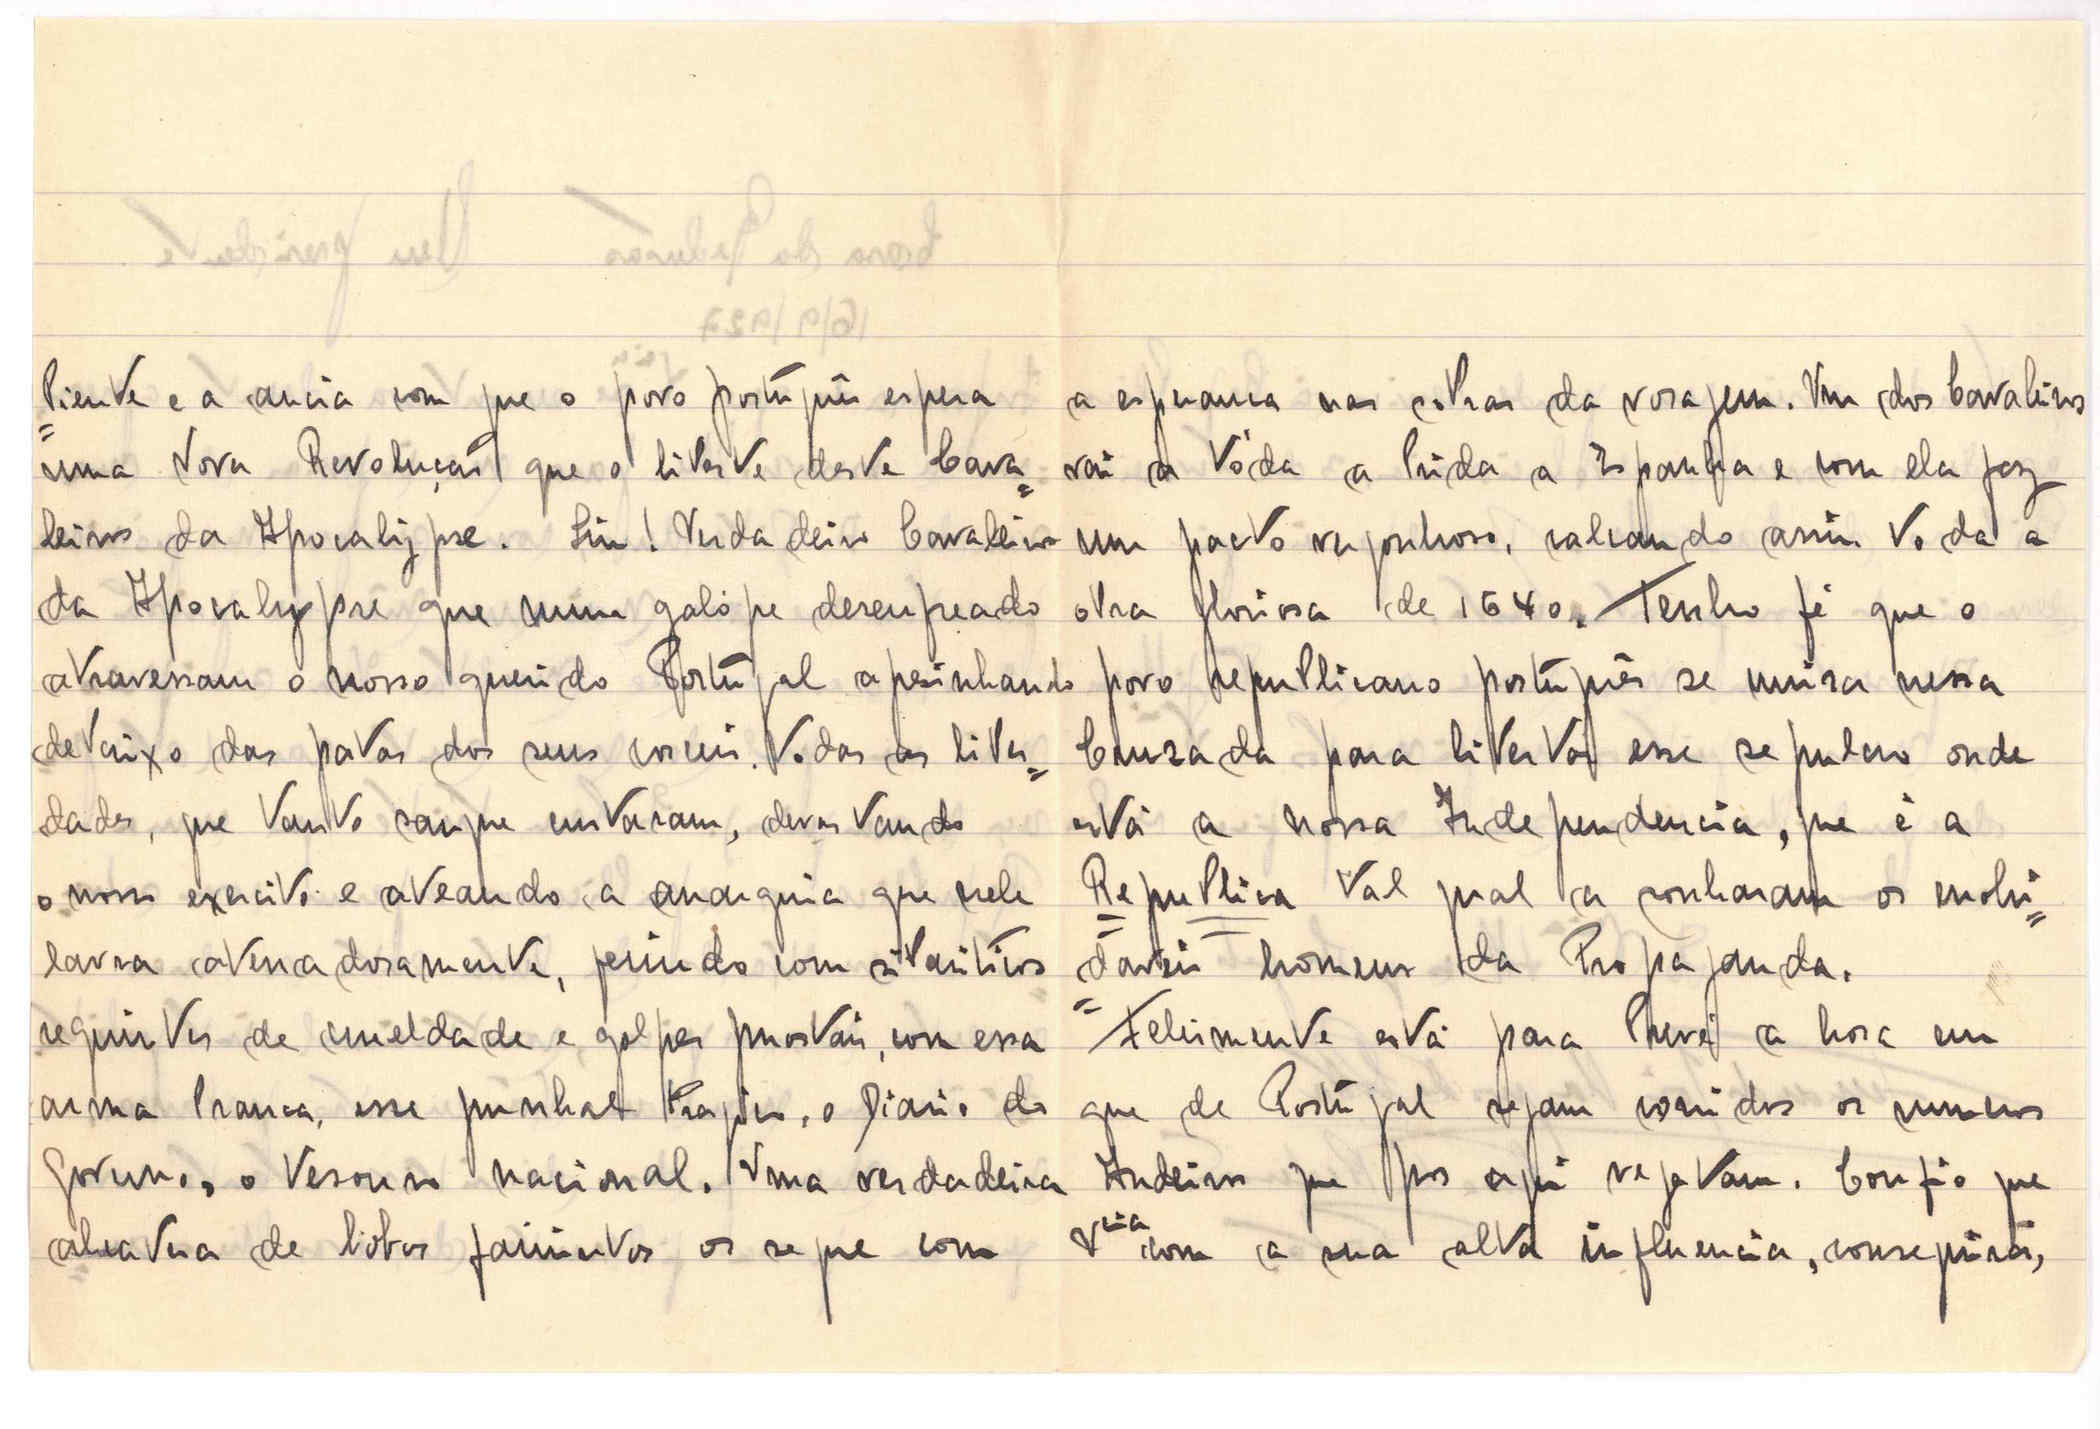 biente e a ancia com que o povo português espera
uma nova Revolução que o liberte deste Cava=
leiros da Apocalypse. Sim! Verdadeiros Cavaleiros
da Apocalypse que num galópe desenfreado
atravessam o nosso querido Portugal apesinhando
debaixo das patas dos seus corceis. Todas as liber=
dades, que tanto sangue custaram, devastando
o nosso exercito e ateando a anarquia que nele
lavra aterradoramente, ferindo com sibariticos
requintes de crueldade e golpes mortais, com essa
arma branca, esse punhal tragico, o Diario do
Governo, o Tesouro nacional. Uma verdadeira
alcateia de lobos famintos os segue com
a esperança nas sobras da voragem. Um dos Cavaleiros
vai a tôda a brida a Espanha e com ela faz
um pacto vergonhoso, calcando assim toda a
obra gloriosa de 1640. Tenho fé que o
povo republicano português se unirá nessa
Cruzada para libertar esse sepulcro onde
está a nossa Independencia, que é a
Republica tal qual a sonharam os inolvi=
daveis homens da Propaganda.
Felismente está para breve a hora em
que de Portugal sejam corridos os
Andeiros que por aqui vegetam. Confio que
V.cia com a sua alta influencia, conseguirá,
Meu presidente
16/9/927